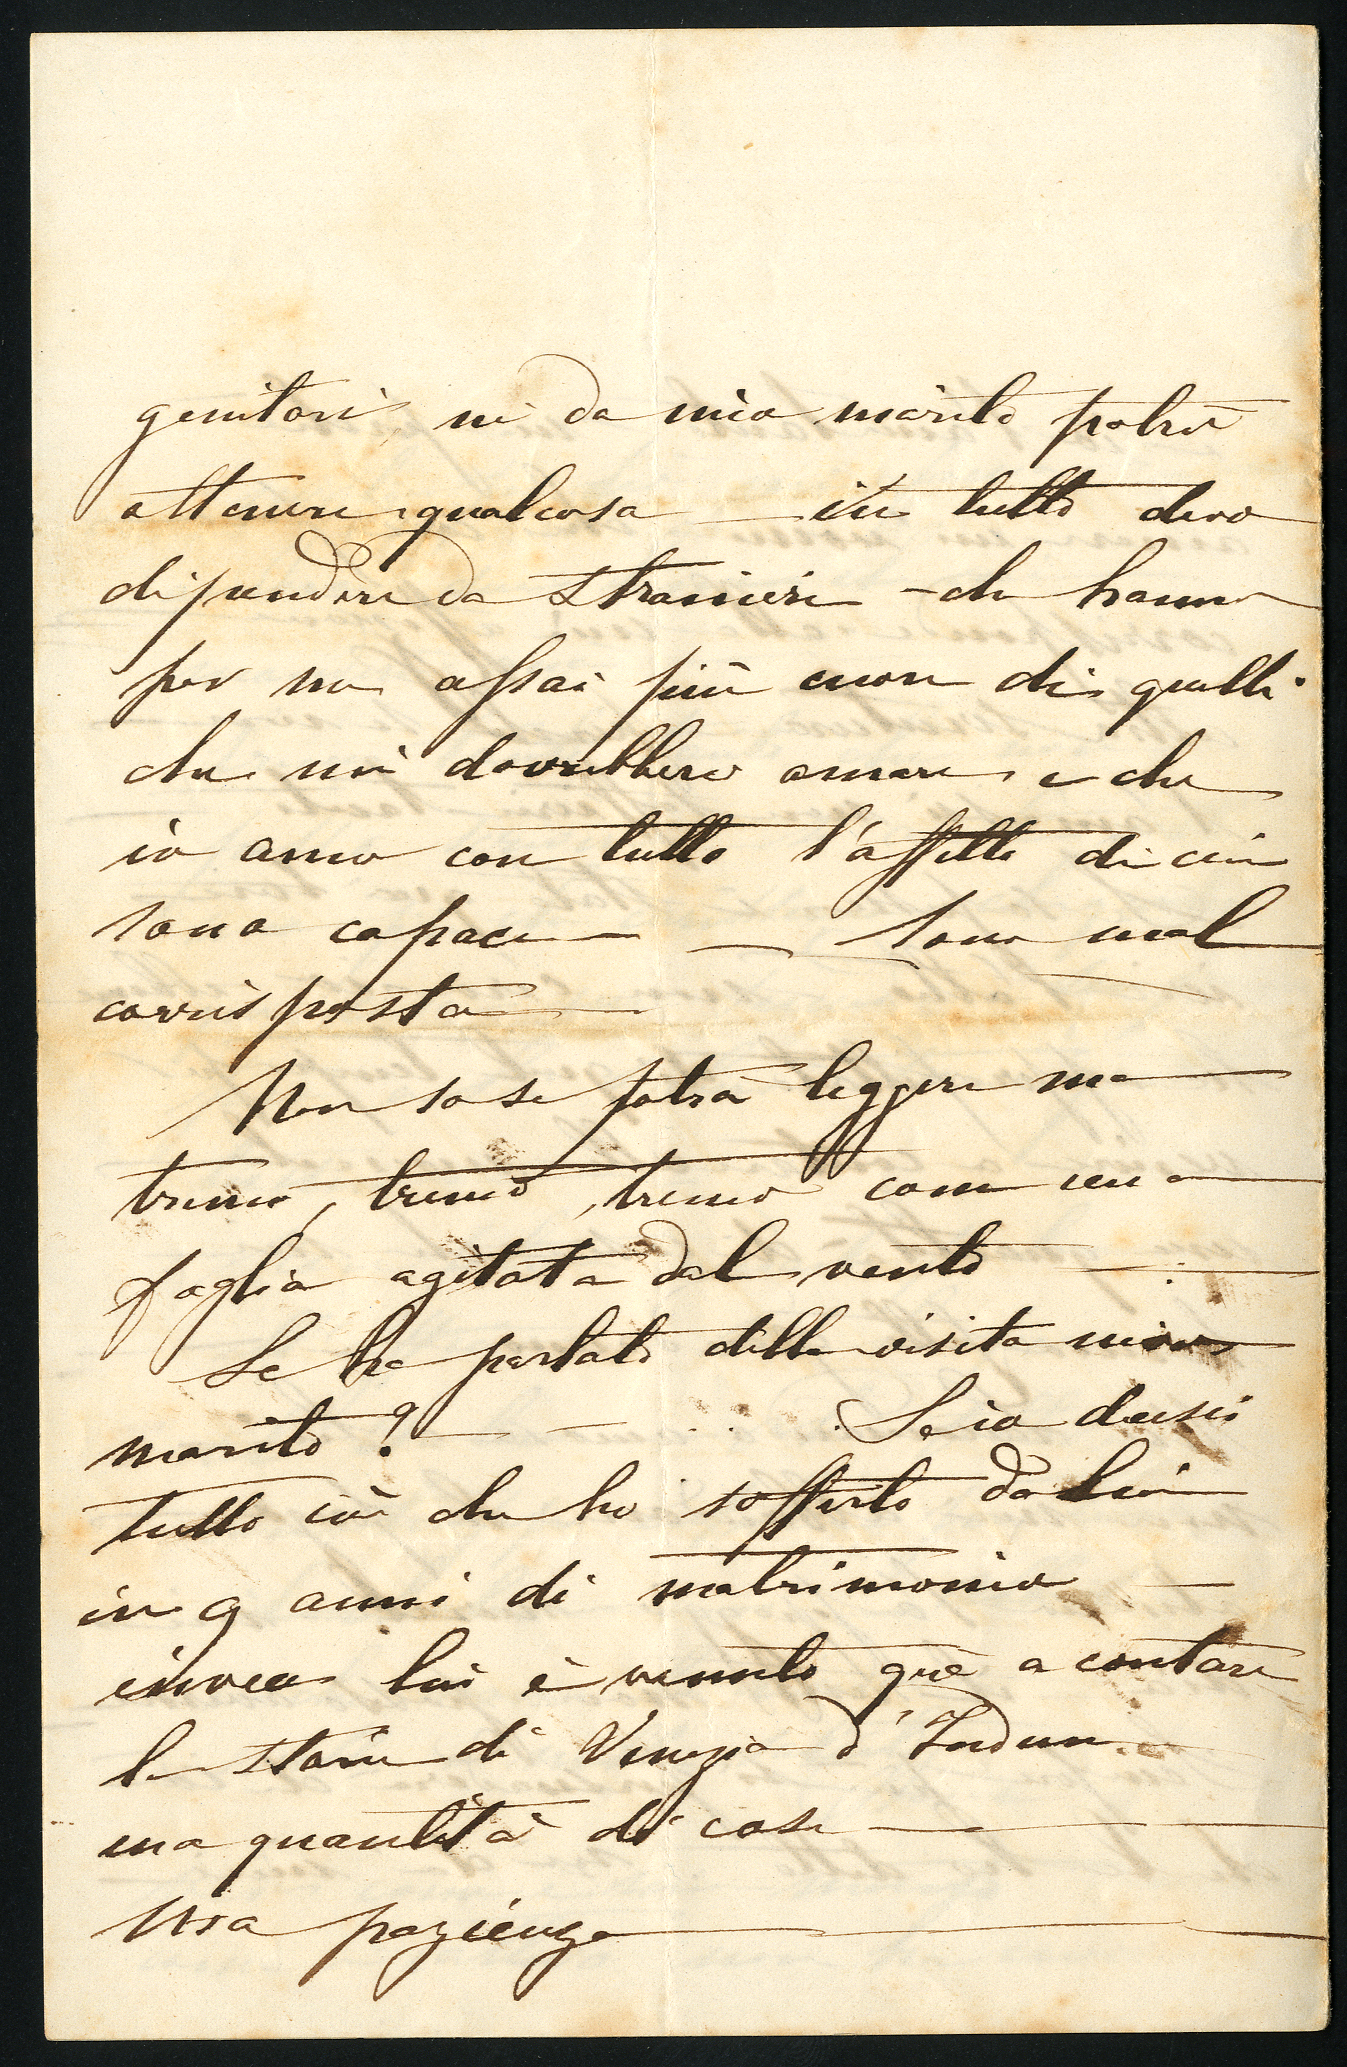 genitori, nè da mio marito potrò
ottenere qualcosa — in tutto devo
dipendere da stranieri — che hanno
per me assai più cuore di quelli
che mi dovrebbero amare e che
io amo con tutto l'affetto di cui
sono capace — — Sono mal
corrisposta —
Non so se potrà leggere ma
tremo, tremo, tremo come una
foglia agitata dal vento —
Le ha parlato della visita mio
marito? — . . . Se io dicessi
tutto ciò che ho sofferto da lui
in 9 anni di matrimonio —
invece lui è venuto quì a contare
le storie di Venezia d'
una quantità di cose —
Usa pazienza —